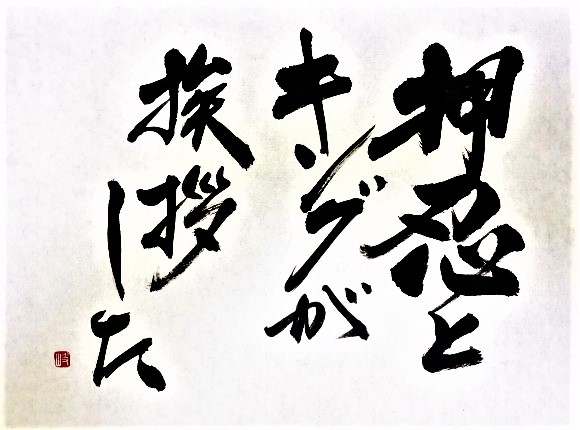 押忍と
キングが
挨拶
した
岐